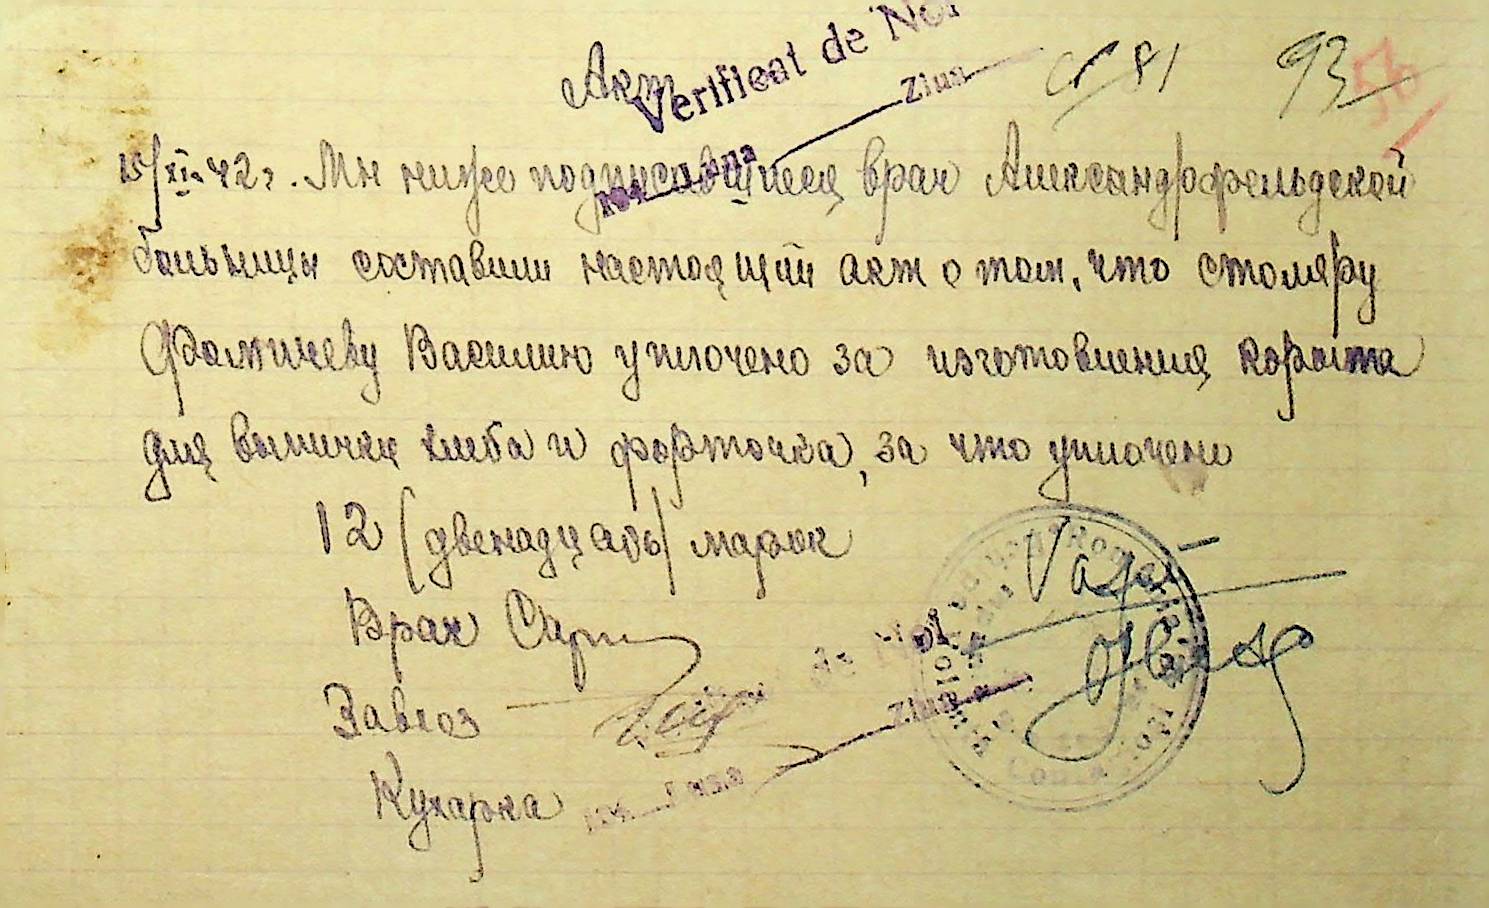 Акт
Verificat de Noi
Ziua
81 93
15/XI.42г. Мы ниже подписавшиеся врач Александрфельдской
больницы составили настоящий акт о том, что столяру
Фомичеву Василию уплочено за изготовления корыта
для выпичке хлеба и форточка, за что уплочено
12 (двенадцать) марок
Врач
Завхоз
Кухарка
de Noi
Ziua